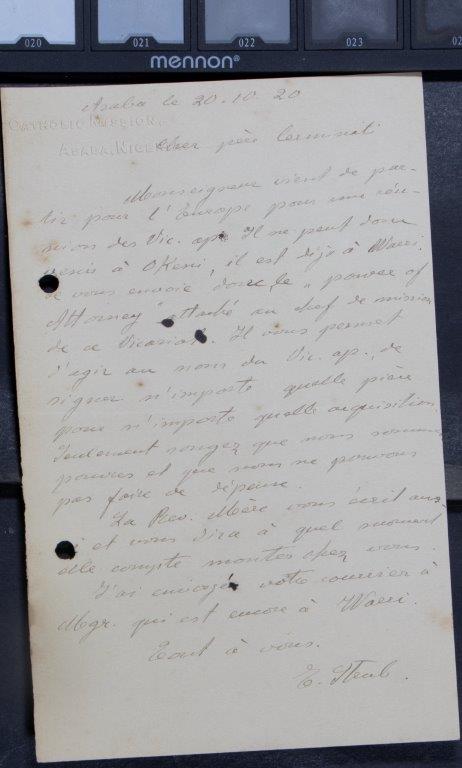 020 021 022 023 02
mennon®
Asaba le 20.10.20
CATHOLIC MISSION,
ASABA, NIGER
Cher père
Monseigneur vient de par-
tir pour l'Europe pour une réu-
nion des Vic. ap. Il ne peut donc
venir à Okeni, il est déjà à Warri.
Je vous envoie donc le "power of
Attorney" attaché au chef de mission
de ce Vicariat. Il vous permet
d'agir au nom du Vic. ap., de
signer n'importe quelle pièce
pour n'importe quelle acquisition.
Seulement songez que nous sommes
pauvres et que nous ne pouvons
pas faire de dépense.
La Rev. Mère vous écrit aus-
si et vous dira à quel moment
elle compte monter chez vous.
J'ai envoyé votre courrier à
Mgr. qui est encore à Warri.
Tout à vous.
E. Steub.